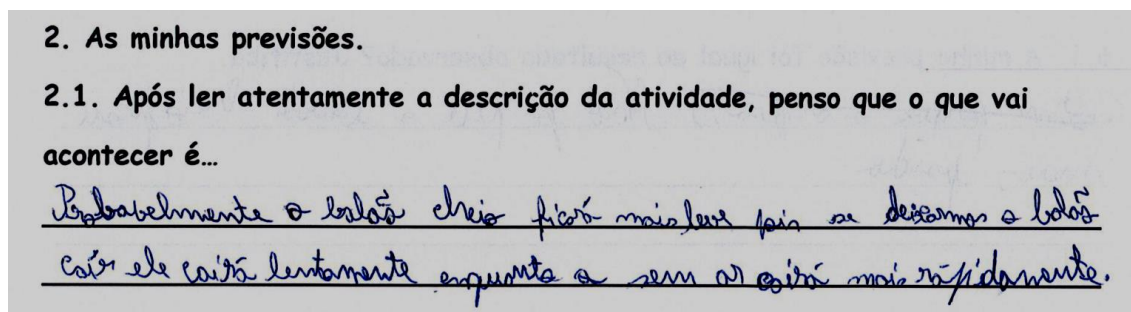 2. As minhas previsões.
2.1. Após ler atentamente a descrição da atividade, penso que o que vai
acontecer é...
Probabelmente o balão cheio ficará mais leve pois se deixarmos o balão
caír ele cairá lentamente enquanto o sem ar cairá mais rápidamente.